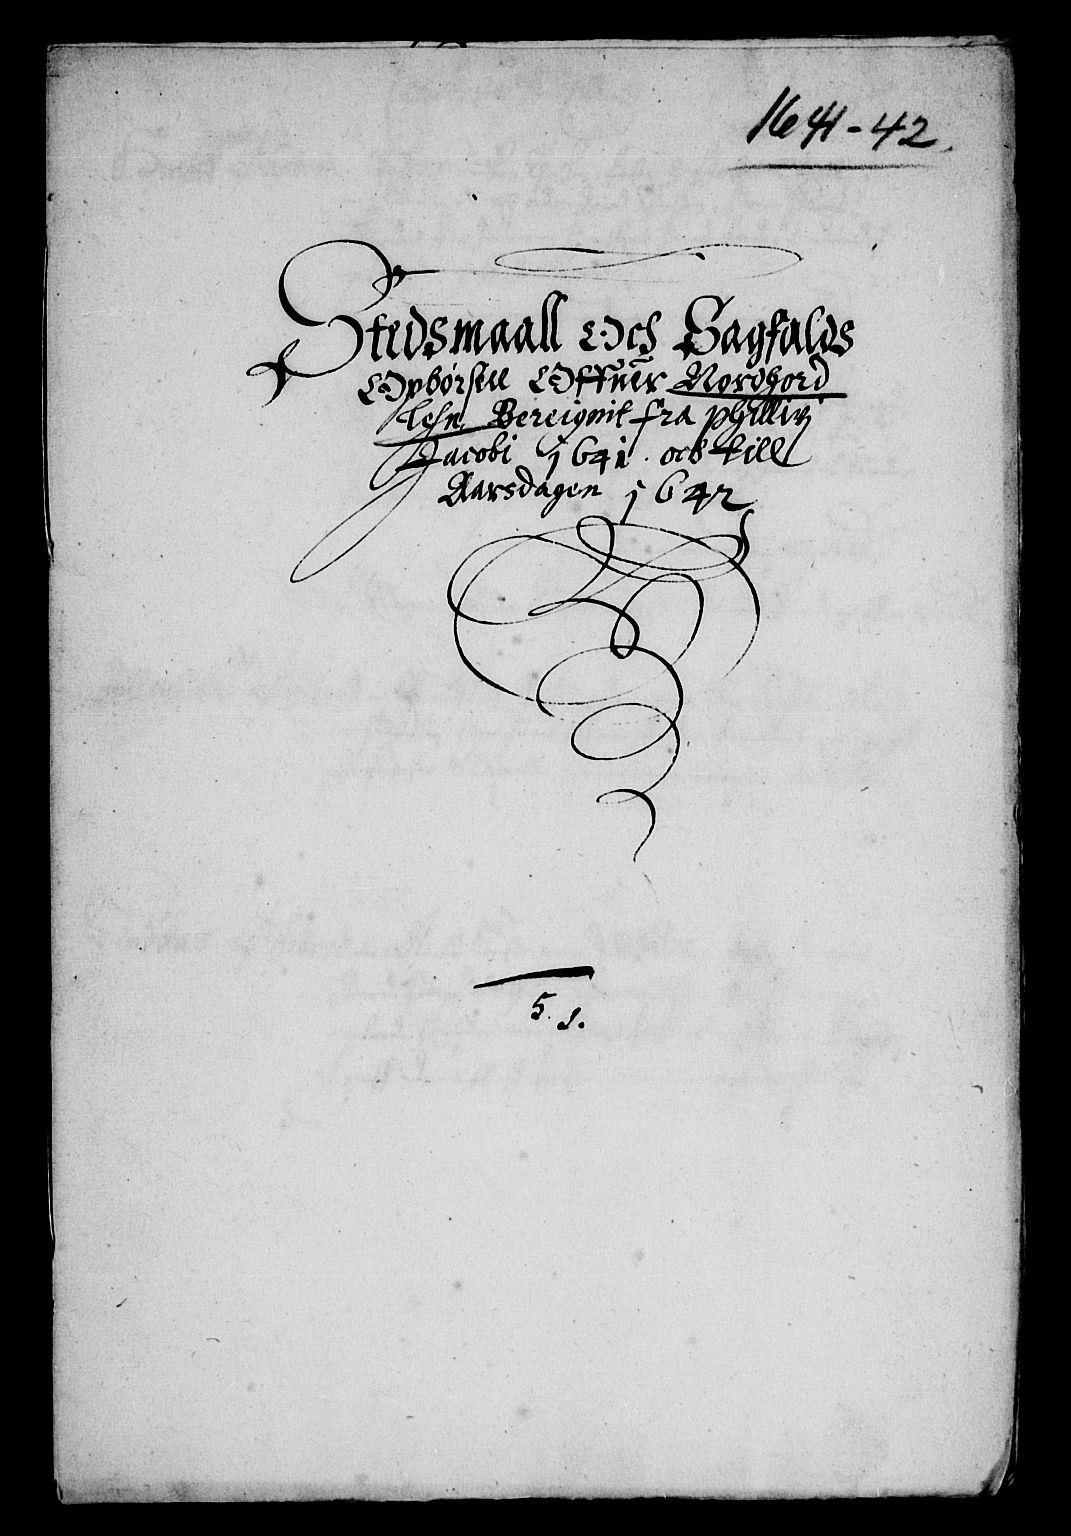 1641-42.
Stedsmaall Och Sagfalds
Opbørsell Offuer Nordhord
lehn Bereignit fra Phillip
Jacobi 1641. och till
Aarsdagen 1642
5. 1.